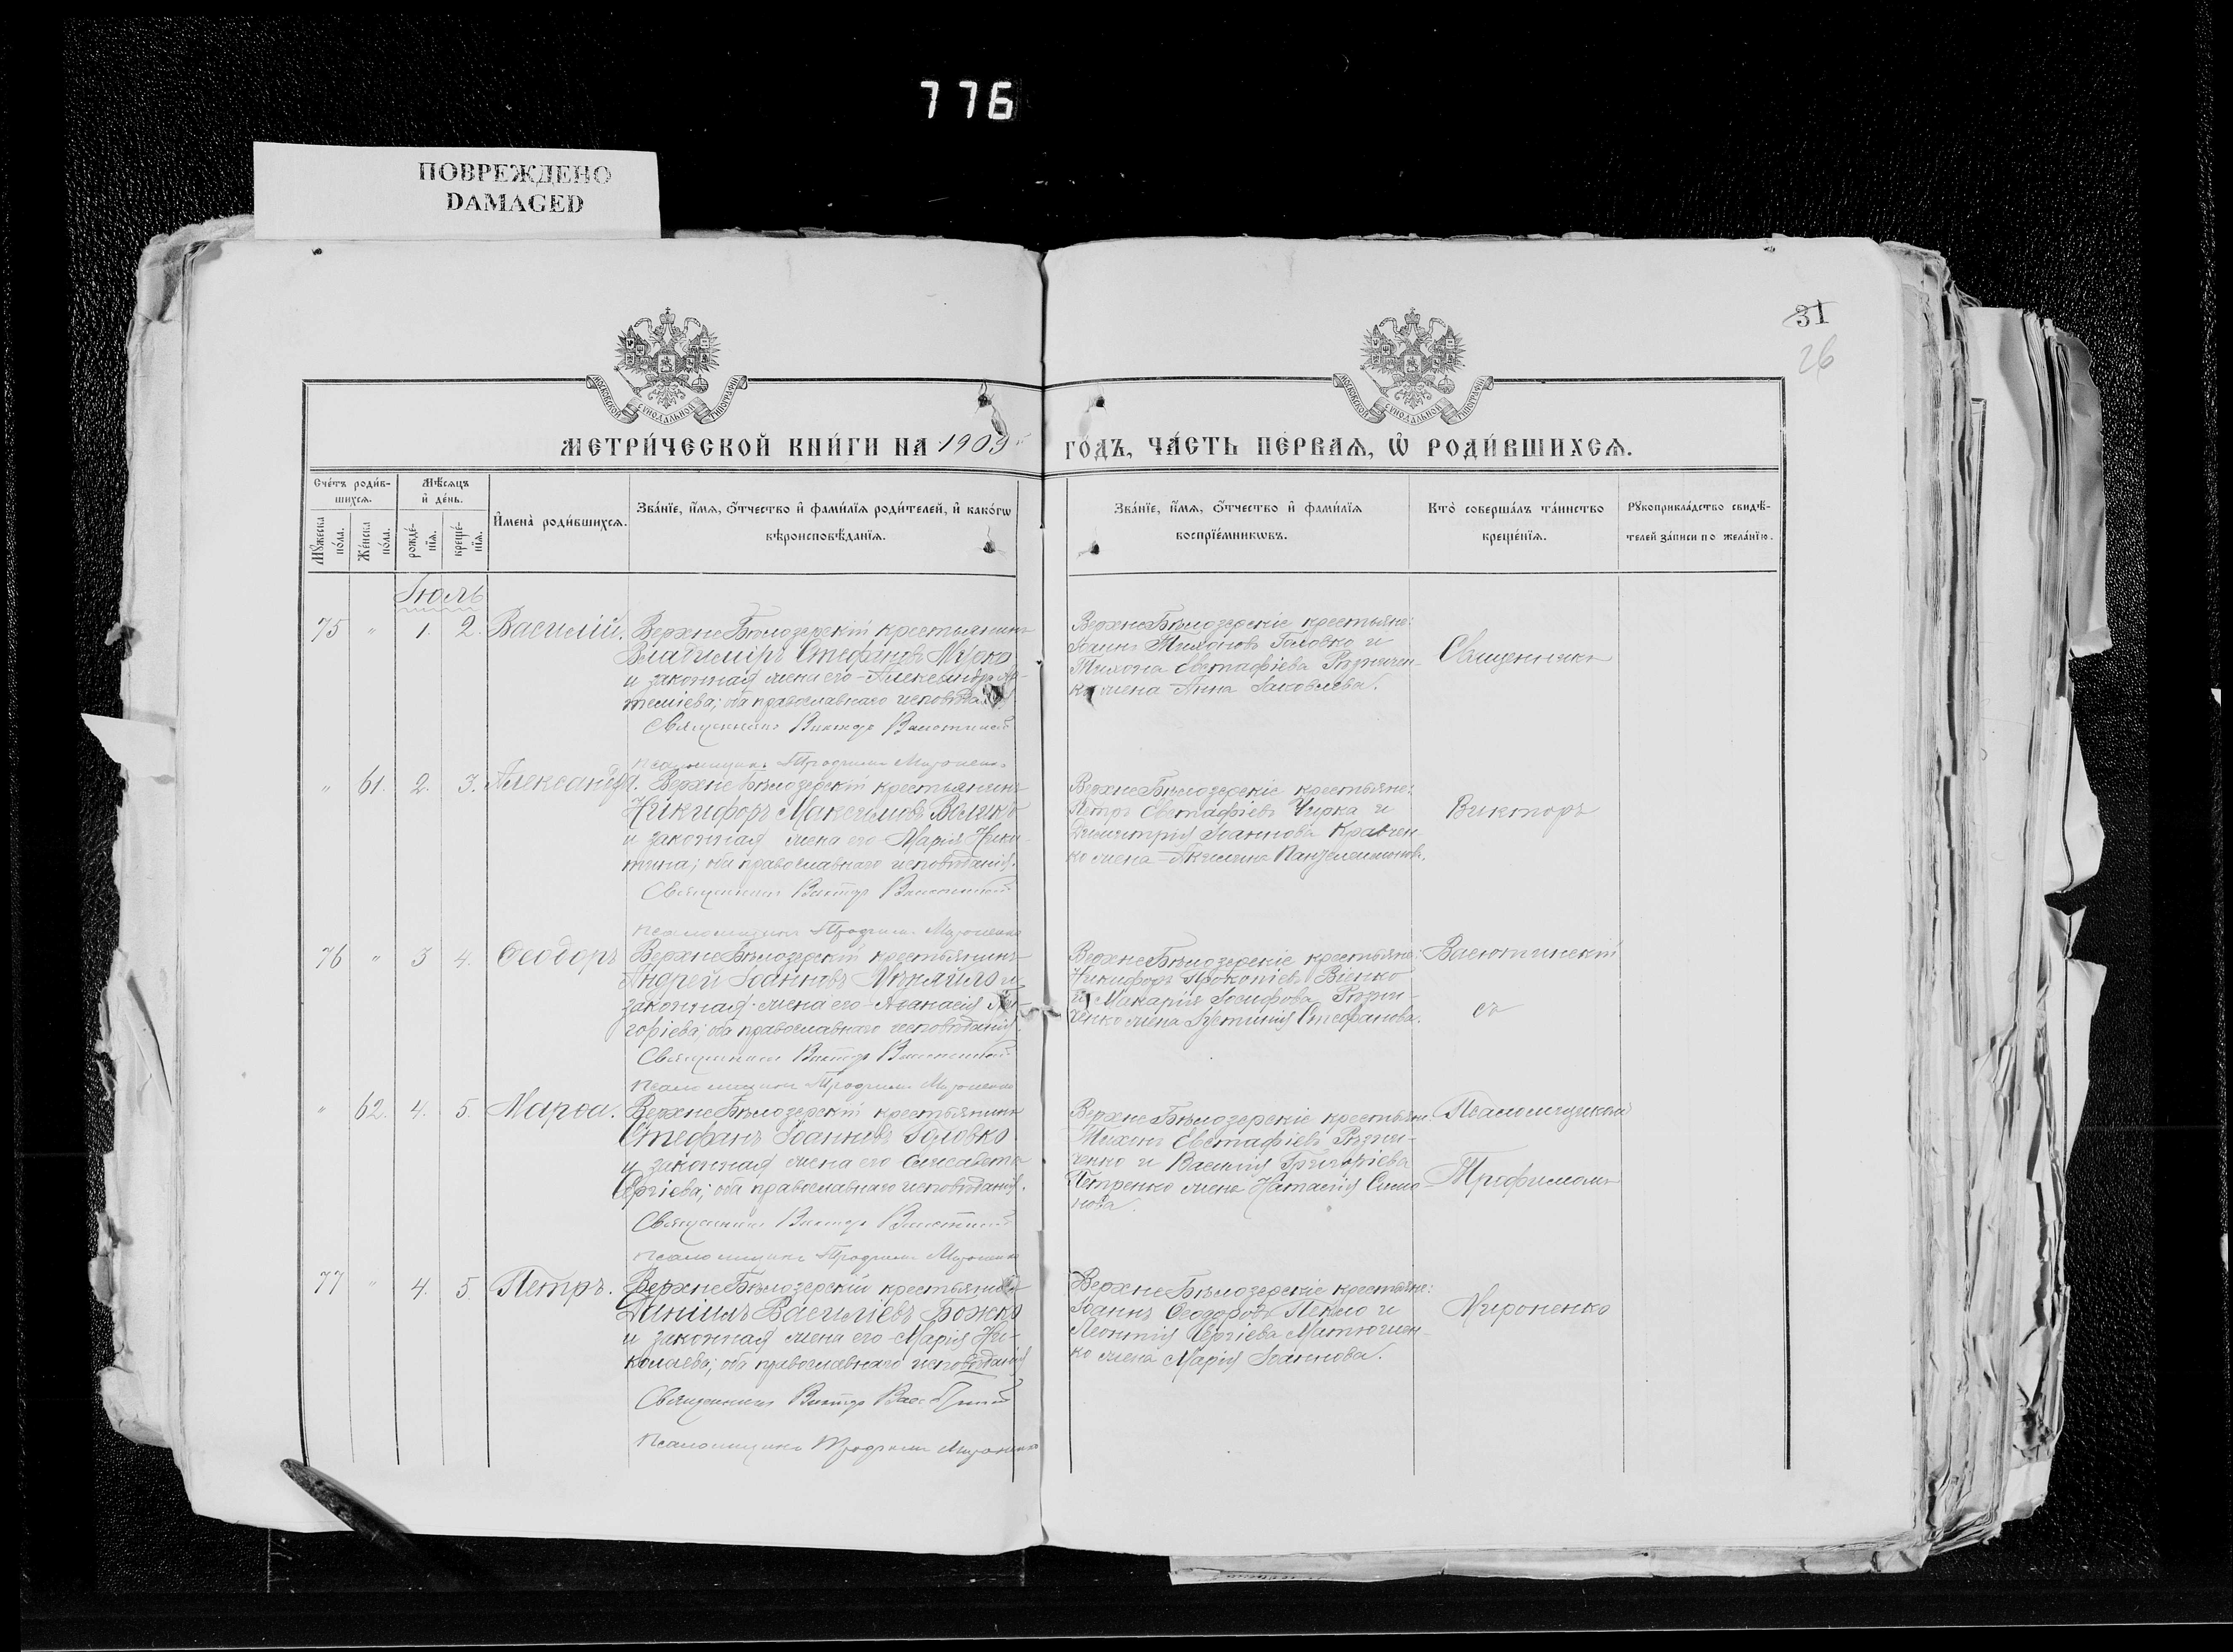 776
ПОВРЕЖДЕНО
DAMAGED
31
26
МОСКОВСКОЙ СѴНОДАЛЬНОЙ ТИПОГРАФІИ
МОСКОВСКОЙ СѴНОДАЛЬНОЙ ТИПОГРАФІИ
МЕТРИ́ЧЕСКОЙ КНИ́ГИ НА 1909
ГО́ДЪ, ЧА́СТЬ ПЕ́РВАЯ, Ѡ҆ РОДИ́ВШИХСЯ.
Сче́тъ роди́в-
шихся.
Мѣ́сяцъ
и҆ де́нь.
Мꙋ́жеска
по́ла.
Же́нска
по́ла.
рожде́-
нїя.
креще́-
нїя.
И҆мена̀ роди́вшихся.
Зва́нїе, и҆́мя, ѻ҆́тчество и҆ фами́лїя роди́телей, и҆ како́гѡ
вѣроисповѣ́данїя.
Зва́нїе, и҆́мя, ѻ҆́тчество и҆ фами́лїя
воспрїе́мникѡвъ.
Кто̀ соверша́лъ та́инство
креще́нїя.
Рꙋкоприкла́дство свидѣ́-
телей за́писи по жела́нїю.
Іюль
75 " 1. 2. Василій.
Верхне Бѣлозерскій крестьянинъ
Владиміръ Стефановъ
и законная жена его Александра Ар-
темієва; оба православнаго исповѣда
Священникъ Викторъ Васютинскій
Псаломщикъ Трофимъ Мироненко
Верхне Бѣлозерскіе крестьяне:
Іоаннъ Тихоновъ Головко и
Тихона Евстафіева Рѣзнчен-
ко жена Анна Іаковлева.
Священникъ
" 61. 2. 3. Александра.
Верхне Бѣлозерскій крестьянинъ
Никифоръ Максимовъ Велико
и законная жена его Марія Ники-
тина; оба православнаго исповѣданія.
Священникъ Викторъ Васютинскій
Псаломщикъ Трофимъ Мироненко
Верхне Бѣлозерскіе крестьяне:
Петръ Евстафіевъ Чирка и
Димитрія Іоаннова Кравчен-
ко жена Акилина Пантелеимонова.
Викторъ
76 " 3 4. Ѳеодоръ
Верхне Бѣлозерскій крестьянинъ
Андрей Іоанновъ и
законная жена его Аѳанасія
горіева; оба православнаго исповѣданія.
Священникъ Викторъ Васютинскій
Псаломщикъ Трофимъ Мироненко
Верхне Бѣлозерскіе крестьяне:
Никифоръ Прокопіевъ Віенко
и Макарія Іосифова Рѣзни-
ченко жена Іустинія Стефанова.
Васютинскій
съ
" 62. 4. 5. Марѳа.
Верхне Бѣлозерскій крестьянинъ
Стефанъ Іоанновъ Головко
и законная жена его Елисавета
Сергіева; оба православнаго исповѣданія.
Священникъ Викторъ Васютинскій
Псаломщикъ Трофимъ Мироненко
Верхне Бѣлозерскіе крестьяне:
Тихонъ Евстафіевъ Рѣзни-
ченко и Василія Григоріева
Петренко жена Наталія Симо-
нова.
Псаломщикомъ
Трофимомъ
77 " 4. 5. Петръ.
Верхне Бѣлозерскій крестьянинъ
Даніилъ Василіевъ Божко
и законная жена его Марія Ни-
колаева; оба православнаго исповѣданія
Священникъ Викторъ Васютинскій
Псаломщикъ Трофимъ Мироненко
Верхне Бѣлозерскіе крестьяне:
Іоаннъ Ѳеодоровъ Пекло и
Леонтія Сергіева Матюшен-
ко жена Марія Іоаннова.
Мироненко